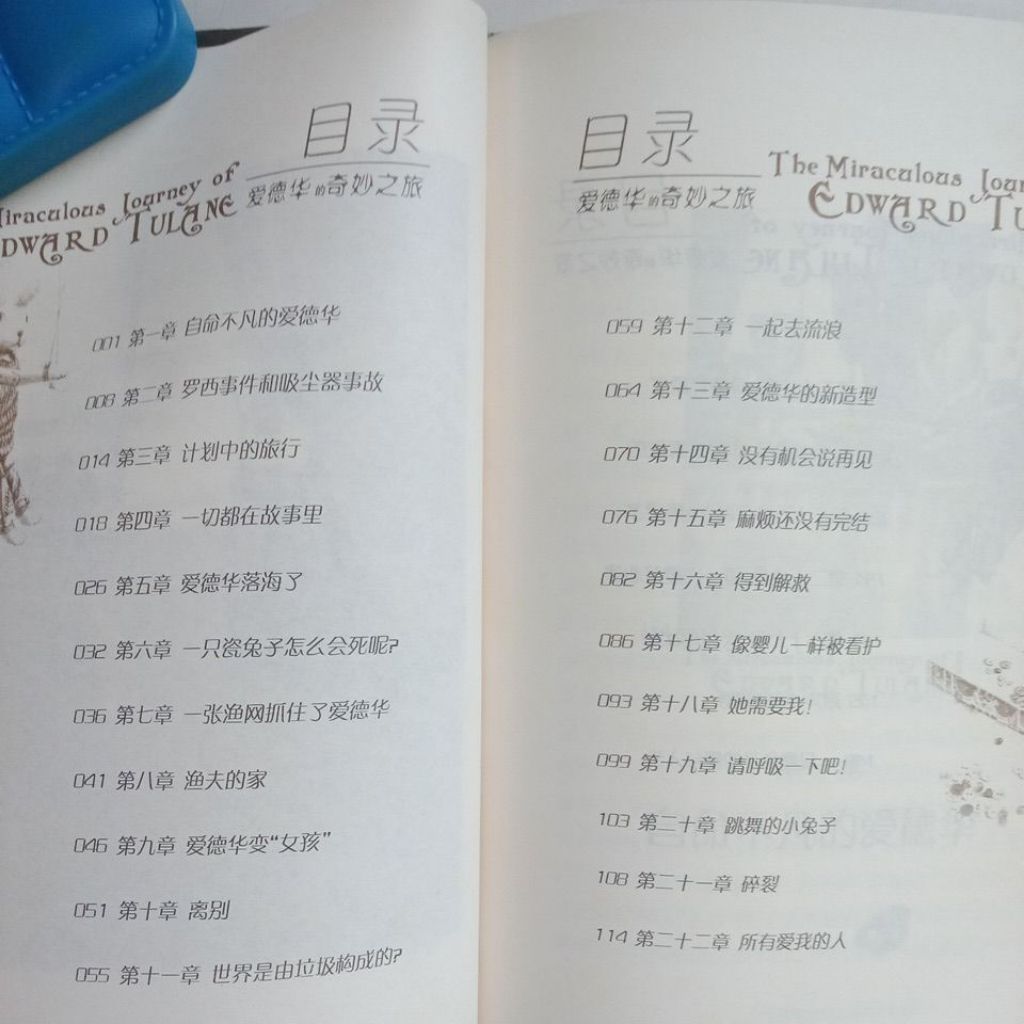 目录
爱德华的奇妙之旅
Journey of
TULANE
001 第一章 自命不凡的爱德华
008 第二章 罗西事件和吸尘器事故
014 第三章 计划中的旅行
018 第四章 一切都在故事里
026 第五章 爱德华落海了
032 第六章 一只瓷兔子怎么会死呢?
036 第七章 一张渔网抓住了爱德华
041 第八章 渔夫的家
046 第九章 爱德华变“女孩”
051 第十章 离别
055 第十一章 世界是由垃圾构成的?
目录
爱德华的奇妙之旅
The Miraculous
EDWARD
059 第十二章 一起去流浪
064 第十三章 爱德华的新造型
070 第十四章 没有机会说再见
076 第十五章 麻烦还没有完结
082 第十六章 得到解救
086 第十七章 像婴儿一样被看护
093 第十八章 她需要我!
099 第十九章 请呼吸一下吧!
103 第二十章 跳舞的小兔子
108 第二十一章 碎裂
114 第二十二章 所有爱我的人